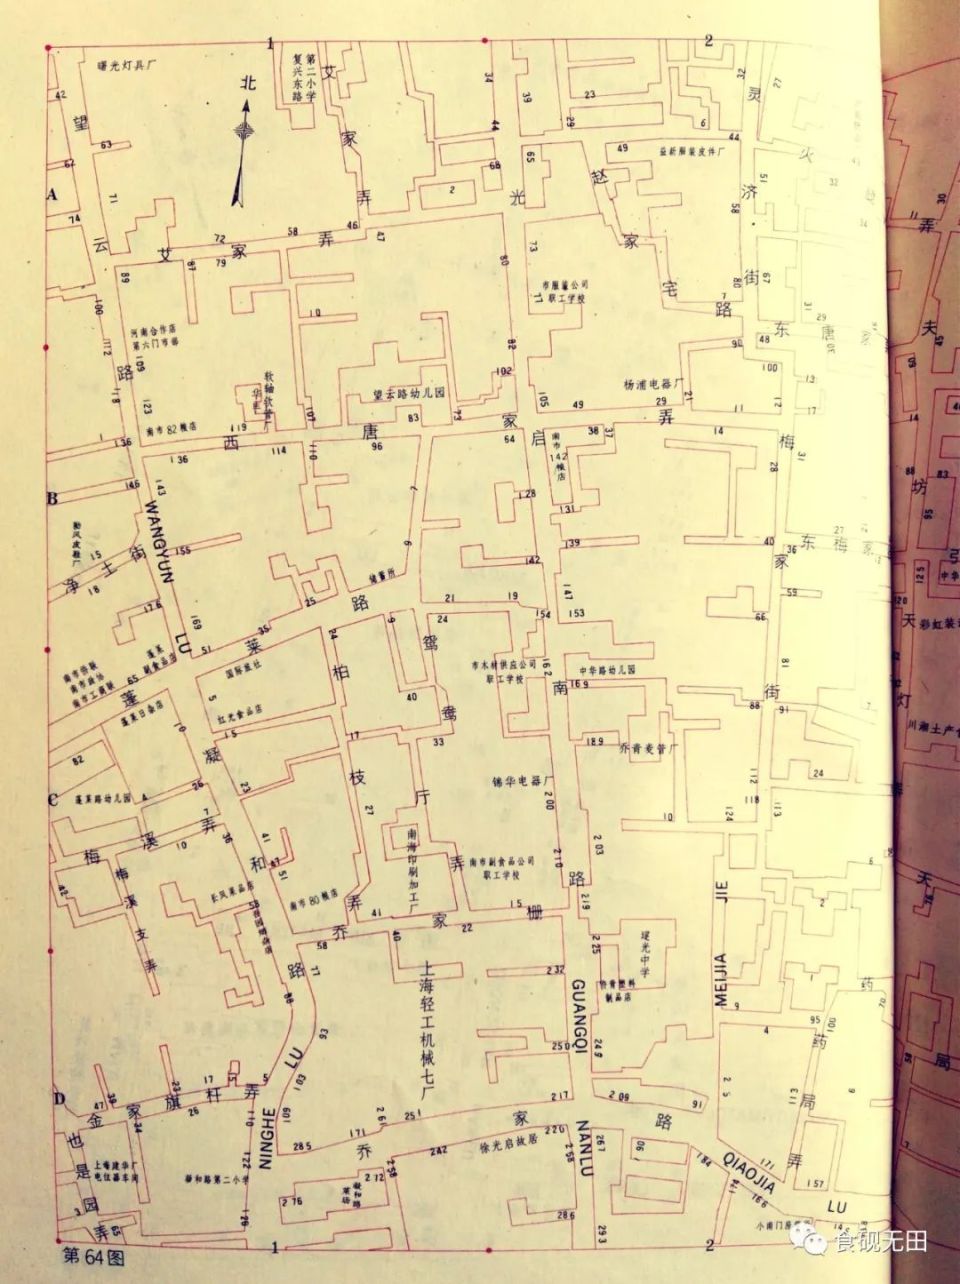 1
2
曙光灯具厂
复兴东路
第二小学
艾家弄
北
34
39
23
32
27
灵济街
42
望云路
63
44
29
6
44
62
65
49
益新服装皮件厂
68
A
71
2
光启南路
赵家宅路
51
58
74
72
58
46
47
艾家弄
87
79
80
73
89
100
市服装公司
职工学校
80
67
7
10
河南合作店
第六门市部
112
109
82
90
48
东唐家
100
13
102
118
软轴软管厂
望云路幼儿园
杨浦电器厂
123
107
83
73
105
49
29
21
11
12
17
136
南市82粮店
119
西唐家弄
136
114
110
96
64
南市
142
粮店
38
37
14
梅家街
31
28
B
146
143
128
131
WANGYUN
LU
勤风皮鞋厂
15
净土街
18
155
139
40
36
东梅家
142
储蓄所
147
59
176
25
蓬莱路
21
19
154
153
66
169
51
35
24
9
24
鸳鸯厅弄
蓬莱
副食品店
南市侨联
南市政协
南市工商联
65
国际旅社
柏枝弄
市木材供应公司
职工学校
162
中华路幼儿园
169
81
蓬莱日杂店
5
红光食品店
40
88
91
10
15
凝和路
17
33
189
乔青麦管厂
82
23
锦华电器厂
200
112
118
24
C
蓬莱路幼儿园
4
26
27
113
124
7
梅溪弄
10
36
41
47
51
南海印刷加工厂
10
203
210
南市副食品公司
职工学校
梅溪支弄
42
长风果品店
58
南市80粮店
41
乔家栅
15
219
40
22
58
77
225
建光中学
JIE
MEIJIA
上海轻工机械七厂
232
GUANGQI
NANLU
9
95
药局弄
100
88
93
250
249
4
LU
NINGHE
103
109
D
47
39
金家旗杆弄
23
17
5
26
34
110
2
5
113
6
217
209
91
251
261
乔家路
171
285
220
徐光启故居
242
258
258
267
也是园弄
上海建华厂
电位器车间
122
凝和路第二小学
272
凝和路
菜场
276
184
QIAOJIA
LU
171
174
166
157
3
65
126
286
293
小南门
1
2
第64图
食砚无田
弄
30
夫
45
坊
14
88
83
95
125
120
天
彩虹装
灯
川湘土产
天
76
局